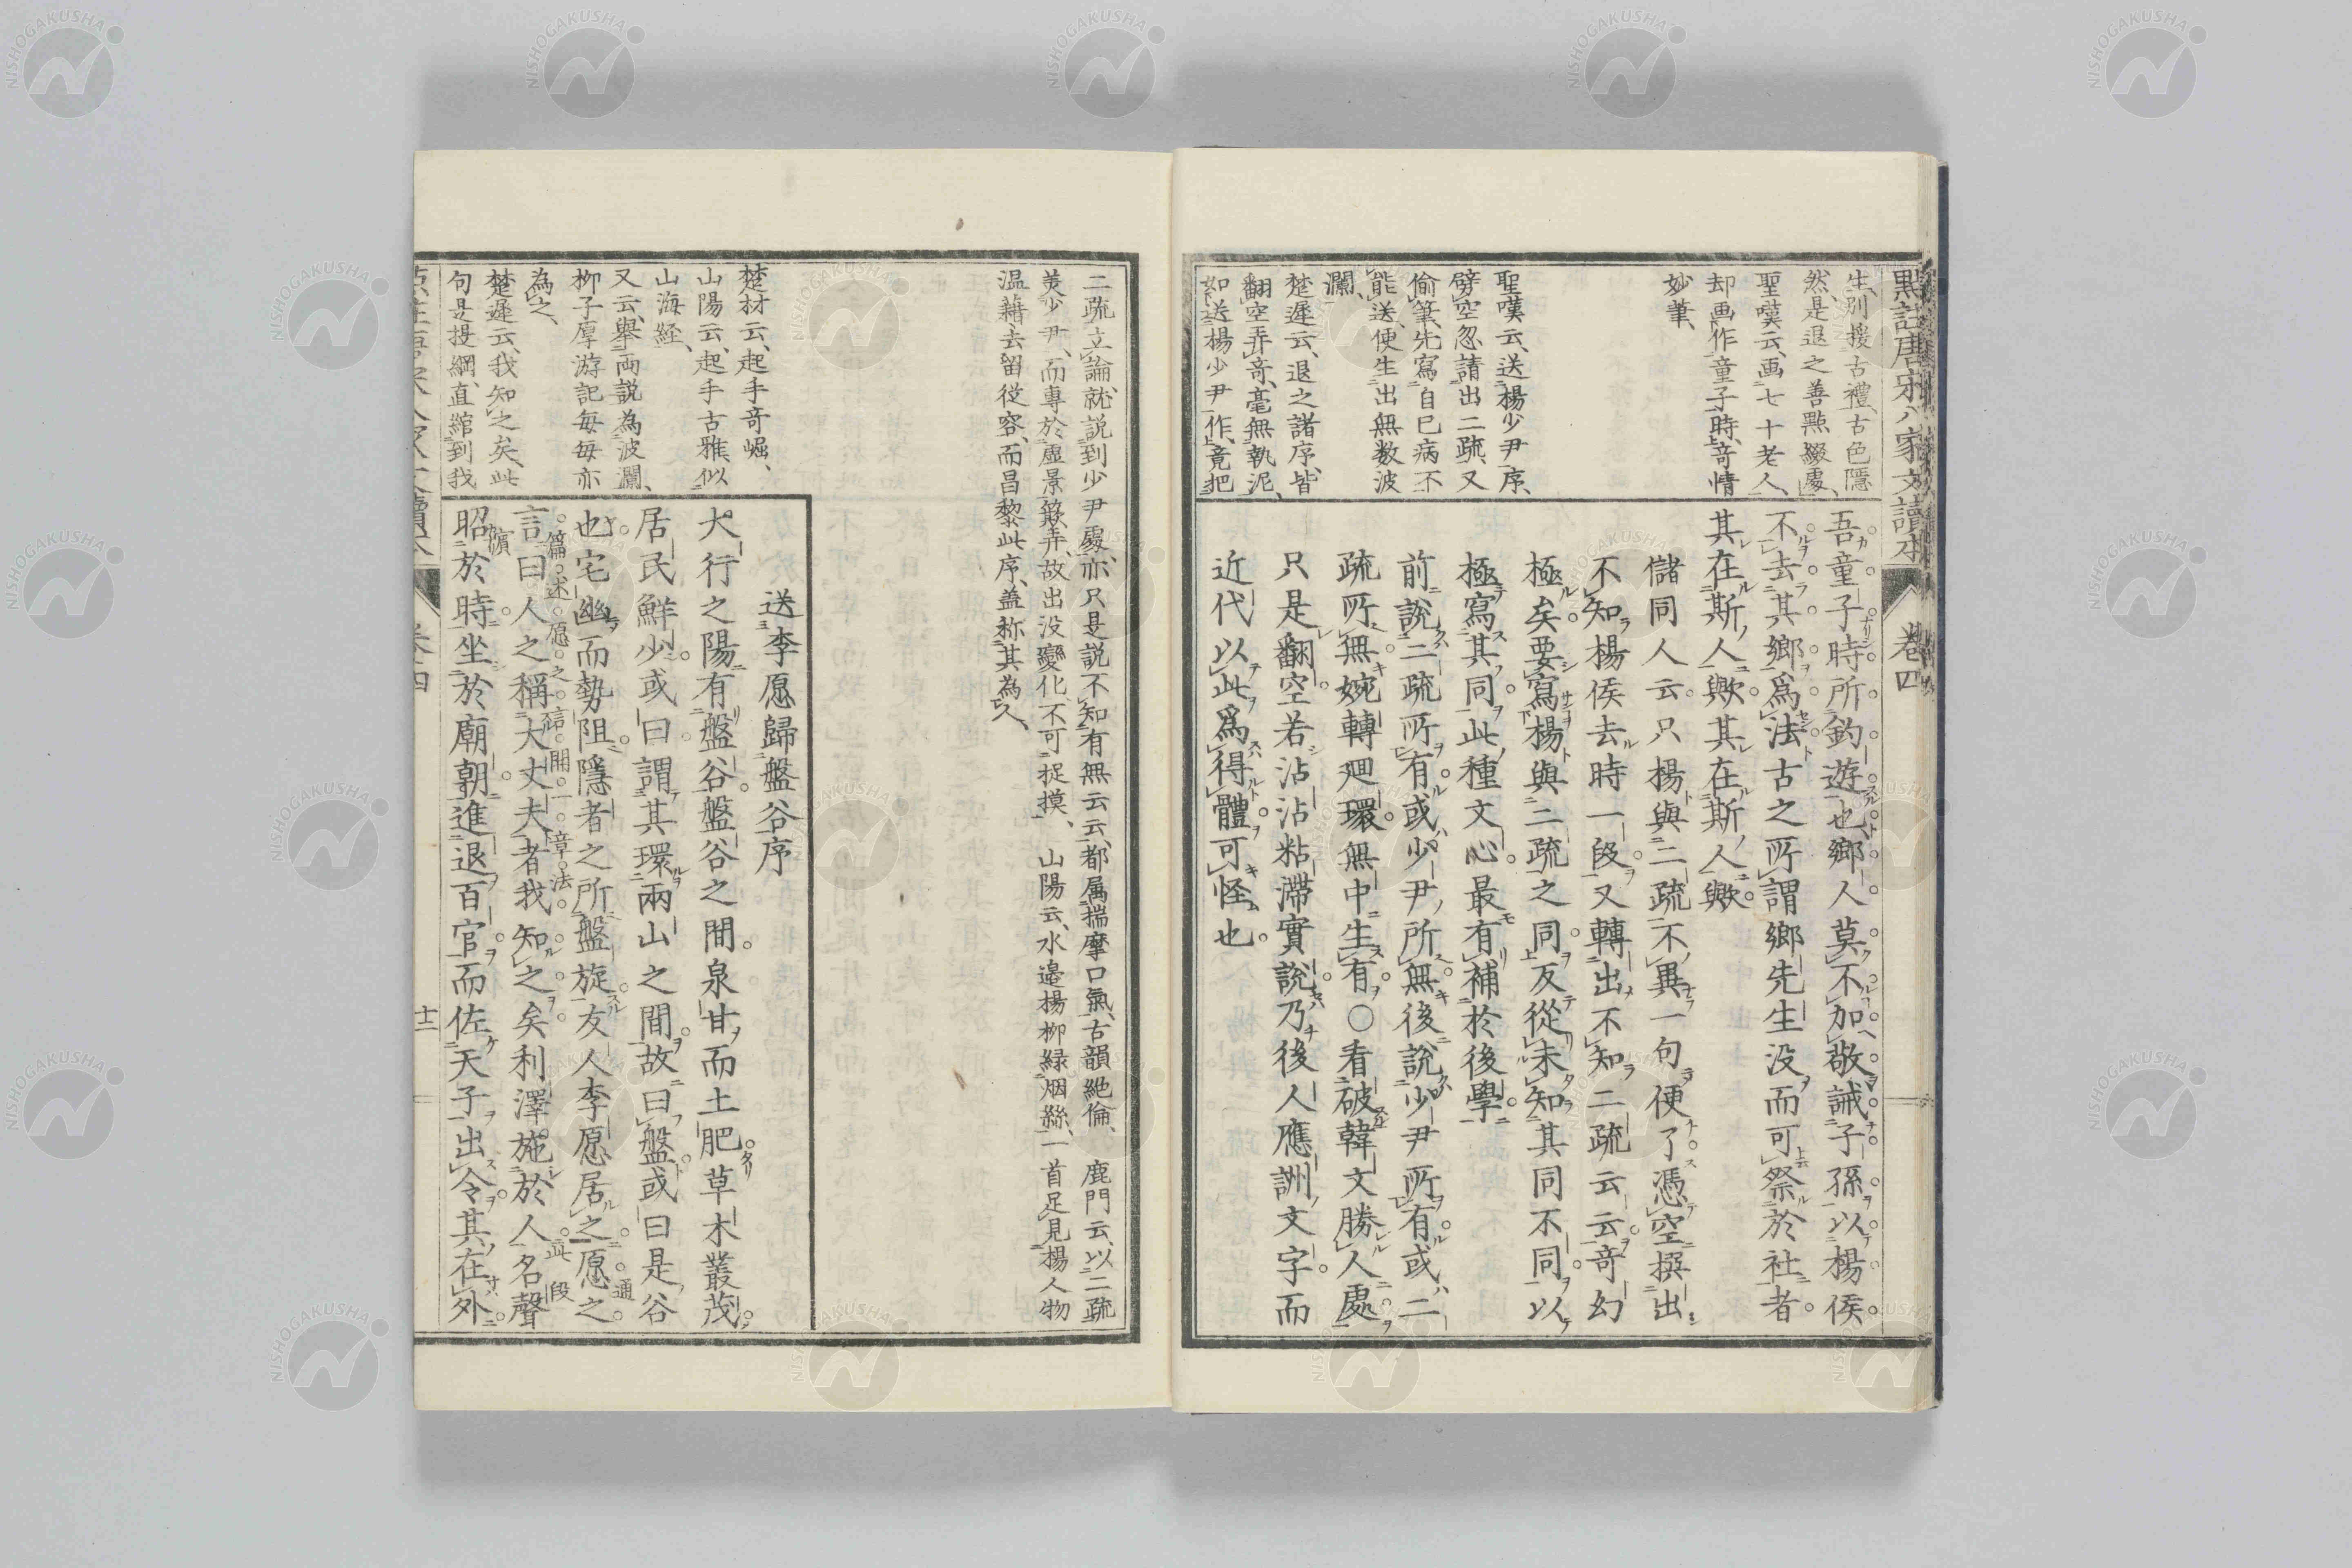 點註唐宋八家文讀本
卷四
生別援古禮、古色隱
然、是退之善點綴處、
聖嘆云、画七十老人、
却画作童子時、奇情
妙筆、
聖嘆云、送楊少尹序、
劈空忽請出二疏、又
偷筆、先寫自已病不
能送、便生出無数波
瀾、
楚遲云、退之諸序、皆
翻空弄奇、毫無執泥、
如送楊少尹作、竟把
吾童子時所釣遊也鄉人莫不加敬誡子孫以楊侯
不去其鄉爲法古之所謂鄉先生没而可祭於社者
其在斯人歟其在斯人歟
儲同人云只楊與二疏不異一句便了憑空撰出
不知楊侯去時一段又轉出不知二疏云云奇幻
極矣要寫楊與二疏之同反從未知其同不同以
極寫其同此種文心最有補於後學
前說二疏所有或少尹所無後說少尹所有或二
疏所無婉轉廻環無中生有〇看破韓文勝人處
只是翻空若沾沾粘滯實說乃後人應詶文字而
近代以此爲得體可怪也
二疏立論、就説到少尹處、亦只是説不知有無云云、都属揣摩口氣、古韻絶倫、 鹿門云、以二疏
美少尹、而專於虛景簸弄、故出没變化、不可捉摸、 山陽云、水邉楊柳緑烟絲、一首足見楊人物
温藉去留從容、而昌黎此序、盖称其為人、
楚材云、起手奇崛、
山陽云、起手古雅、似
山海経、
又云、舉両説為波瀾、
柳子厚游記毎毎亦
為之、
楚遲云、我知之矣、此
句是提綱、直綰到我
送李愿歸盤谷序
大行之陽有盤谷盤谷之間泉甘而土肥草木叢茂
居民鮮少或曰謂其環兩山之間故曰盤或曰是谷
也宅幽而勢阻隱者之所盤旋友人李愿居之愿之
通
篇述愿之言開一章法
此段
言曰人之稱大丈夫者我知之矣利澤施於人名聲
昭於時坐於廟朝進退百官而佐天子出令其在外
卷四
十二